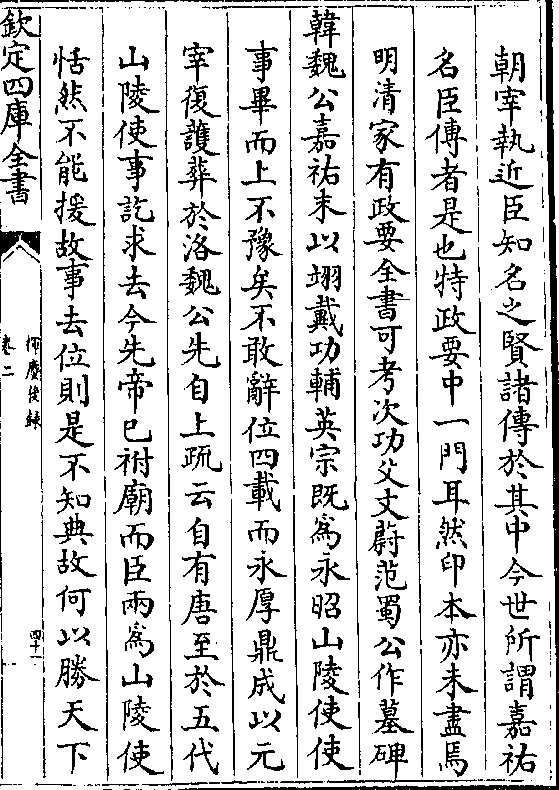 朝宰執近臣知名之賢諸傳於其中今世所謂嘉祐
名臣傳者是也特政要中一門耳然印本亦未盡焉
明清家有政要全書可考次功父丈蔚范蜀公作墓碑
韓魏公嘉祐末以翊戴功輔英宗既為永昭山陵使使
事畢而上不豫矣不敢辭位四載而永厚鼎成以元
宰復護葬於洛魏公先自上疏云自有唐至於五代
山陵使事訖求去今先帝已祔廟而臣兩為山陵使
恬然不能援故事去位則是不知典故何以勝天下
欽定四庫全書
揮麈後錄
卷二
四十一